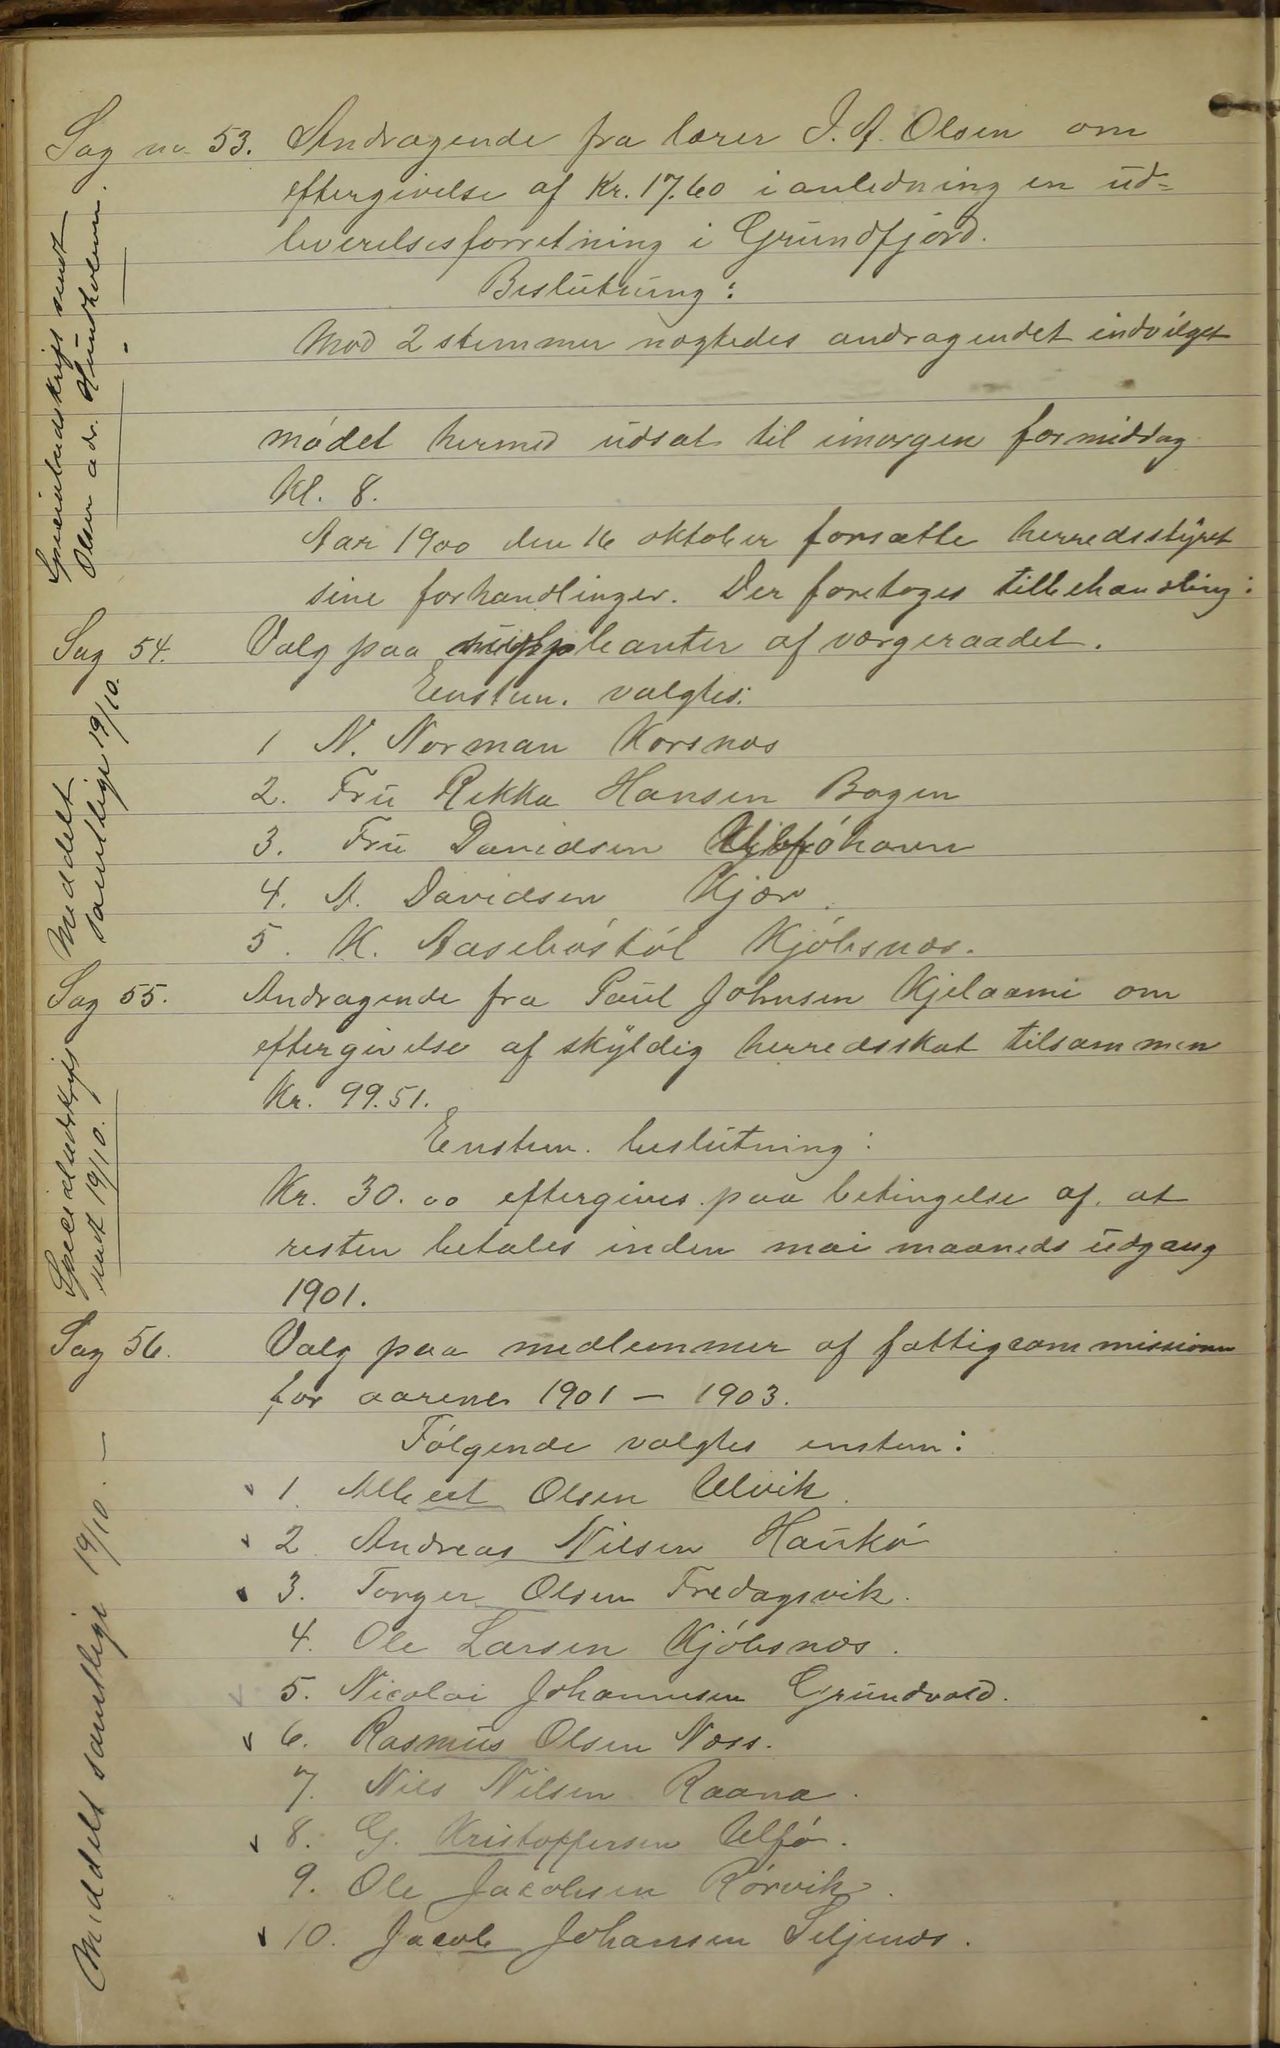 Sag no. 53. Andragende fra lærer I. A. Olsen om
eftergivelse af Kr. 17.60 i anledning en ud-
leverelsesforretning i Grundfjord.
Beslutning:
Mod 2 stemmer nægtedes andragendet indvilget
Olsen adr.
mødet hermed udsat til imorgen formiddag
Kl. 8.
Aar 1900 den 16 oktober forsatte herredsstyret
sine forhandlinger. Der foretoges till behandling:
Sag 54. Valg paa suppleanter af værgeraadet.
Enstem. valgtes:
Meddelt
samtlige 19/10.
1 N. Norman Korsnæs
2. Fru Rikka Hansen Bogen
3. Fru Davidsen
4. A. Davidsen Kjær.
5. K. Aasebøstøl Kjøbsnæs.
Sag 55. Andragende fra Paul Johnsen Kjelaami om
eftergivelse af skyldig herredsskat tilsammen
Kr. 99.51.
Enstem. beslutning:
sendt 19/10.
Kr. 30.00 eftergives paa betingelse af at
resten betales inden mai maaneds udgang
1901.
Sag 56. Valg paa medlemmer af fattigcommissionen
for aarene 1901 – 1903.
Følgende valgtes enstem:
Meddelt samtlige 19/10. –
1. Albert Olsen Ulvik.
2 Andreas Nilsen Haukø
3. Torger Olsen Fredagsvik.
4. Ole Larsen Kjøbsnæs.
5. Nicolai Johannesen Grundvold.
6. Rasmus Olsen Næss.
7. Nils Nilsen Raana.
8. G. Kristoffersen Ulfø.
9. Ole Jacobsen Rørvik.
10. Jacob Johansen Seljenæs.